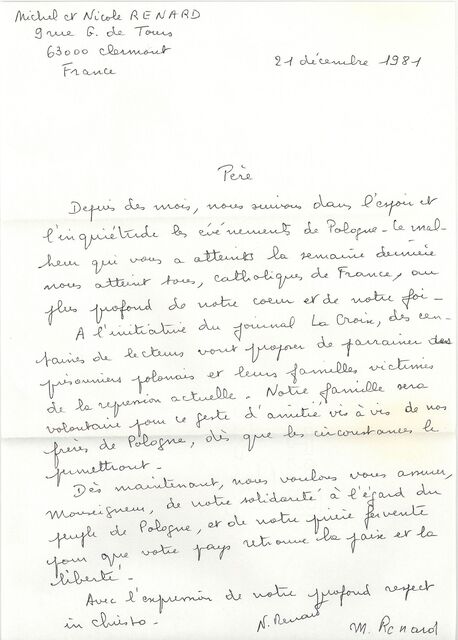 Michel et Nicole RENARD
9 rue G. de Tours
63000 Clermont
France
21 décembre 1981
Père
Depuis des mois, nous suivons dans l'espoir et
l'inquiétude les événements de Pologne - Le mal-
heur qui vous a atteints la semaine dernière
nous atteint tous, catholiques de France, au
plus profond de notre coeur et de notre foi -
A l'initiative du journal La Croix, des cen-
taines de lecteurs vont proposer de parrainer des
prisonniers polonais et leurs familles victimes
de la répression actuelle. Notre famille sera
volontaire pour ce geste d'amitié vis à vis de nos
frères de Pologne, dès que les circonstances le
permettront -
Dès maintenant, nous voulons vous assurer,
Monseigneur, de notre solidarité à l'égard du
peuple de Pologne, et de notre prière fervente
pour que votre pays retrouve la paix et la
liberté -
Avec l'expression de notre profond respect
in christo -
N. Renard
M. Renard